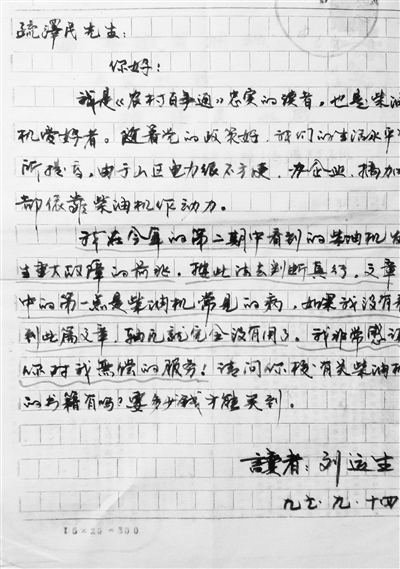 疏澤民先生：
你好！
我是《农村百事通》忠实的读者，也是柴油
机爱好者。随着党的政策好，我们的生活水平有
所提高，由于山区电力很不方便，办企业，搞加
都依靠柴油机作动力。
我在今年的第二期中看到的柴油机发
生重大故障的前兆，按此法去判断真行，文章
中的第一点是柴油机常见的病，如果我没有看
到此篇文章，轴瓦就完全没有用了。我非常感谢
你对我無偿的服务！请问你核有关柴油机
的书籍有吗？要多少钱才能买到。
讀者：刘运生
九七.九.十四
15×20=300